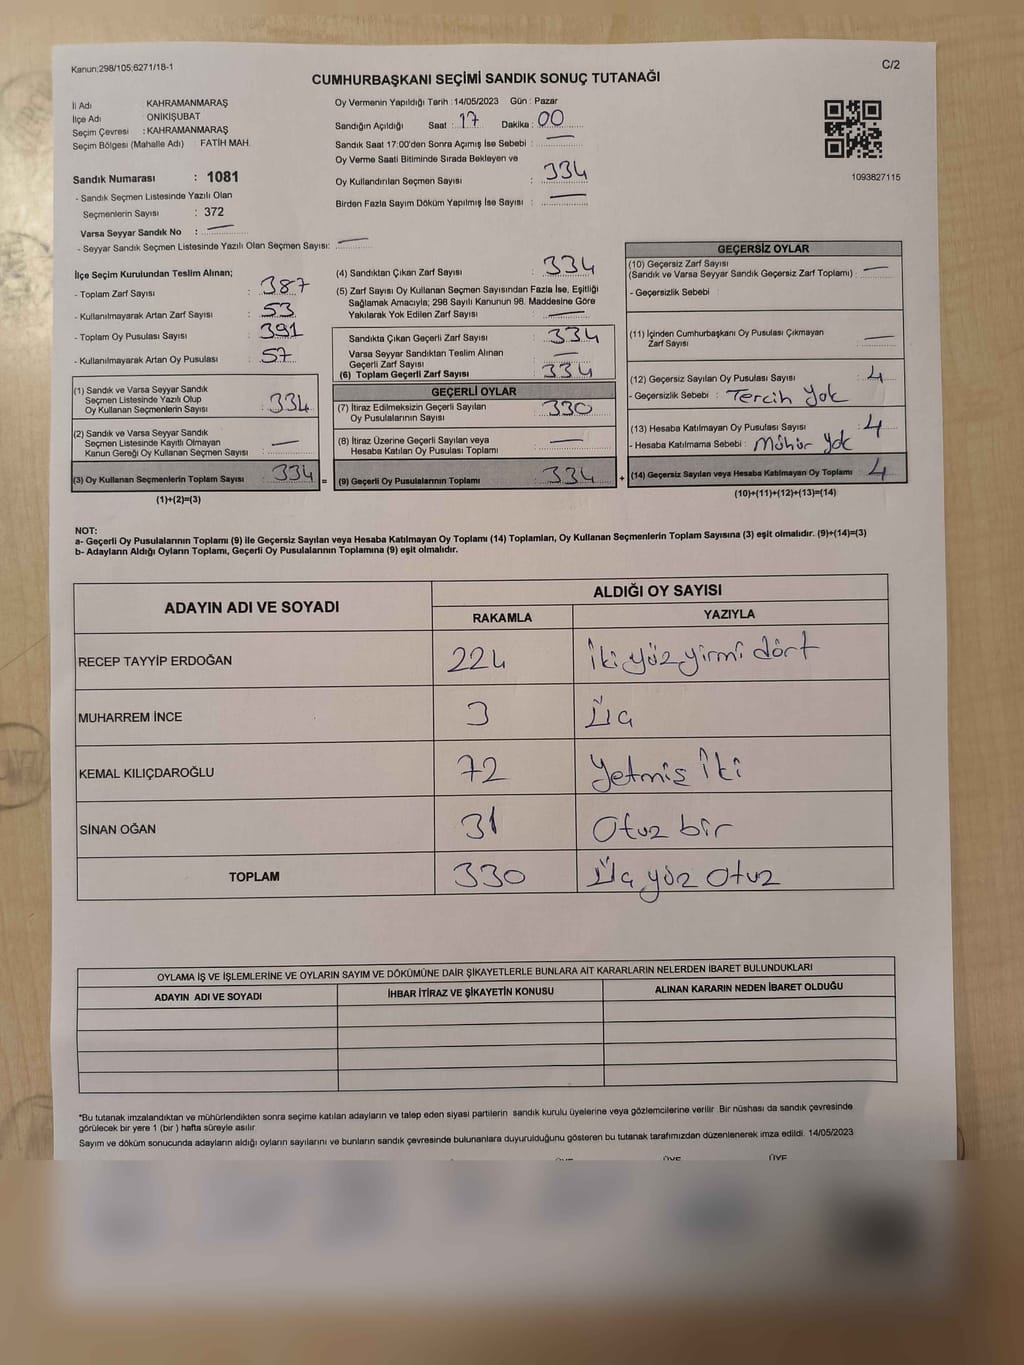 Kanun;298/105;6271/18-1
C/2
CUMHURBAŞKANI SEÇİMİ SANDIK SONUÇ TUTANAĞI
İl Adı KAHRAMANMARAŞ
İlçe Adı ONİKİŞUBAT
Seçim Çevresi : KAHRAMANMARAŞ
Seçim Bölgesi (Mahalle Adı) FATİH MAH.
Sandık Numarası : 1081
- Sandık Seçmen Listesinde Yazılı Olan
Seçmenlerin Sayısı : 372
Varsa Seyyar Sandık No : —
- Seyyar Sandık Seçmen Listesinde Yazılı Olan Seçmen Sayısı: —
Oy Vermenin Yapıldığı Tarih : 14/05/2023 Gün : Pazar
Sandığın Açıldığı Saat : 17 Dakika : 00
Sandık Saat 17:00'den Sonra Açımış İse Sebebi : —
Oy Verme Saati Bitiminde Sırada Bekleyen ve
Oy Kullandırılan Seçmen Sayısı : 334
Birden Fazla Sayım Döküm Yapılmış İse Sayısı : —
1093827115
İlçe Seçim Kurulundan Teslim Alınan;
- Toplam Zarf Sayısı : 387
- Kullanılmayarak Artan Zarf Sayısı : 53
- Toplam Oy Pusulası Sayısı : 391
- Kullanılmayarak Artan Oy Pusulası : 57
(1) Sandık ve Varsa Seyyar Sandık
Seçmen Listesinde Yazılı Olup
Oy Kullanan Seçmenlerin Sayısı : 334
(2) Sandık ve Varsa Seyyar Sandık
Seçmen Listesinde Kayıtlı Olmayan
Kanun Gereği Oy Kullanan Seçmen Sayısı : —
(3) Oy Kullanan Seçmenlerin Toplam Sayısı : 334 =
(1)+(2)=(3)
(4) Sandıktan Çıkan Zarf Sayısı : 334
(5) Zarf Sayısı Oy Kullanan Seçmen Sayısından Fazla İse, Eşitliği
Sağlamak Amacıyla; 298 Sayılı Kanunun 98. Maddesine Göre
Yakılarak Yok Edilen Zarf Sayısı : —
Sandıkta Çıkan Geçerli Zarf Sayısı : 334
Varsa Seyyar Sandıktan Teslim Alınan
Geçerli Zarf Sayısı : —
(6) Toplam Geçerli Zarf Sayısı : 334
GEÇERLİ OYLAR
(7) İtiraz Edilmeksizin Geçerli Sayılan
Oy Pusulalarının Sayısı : 330
(8) İtiraz Üzerine Geçerli Sayılan veya
Hesaba Katılan Oy Pusulası Toplamı : —
(9) Geçerli Oy Pusulalarının Toplamı : 334 +
GEÇERSİZ OYLAR
(10) Geçersiz Zarf Sayısı
(Sandık ve Varsa Seyyar Sandık Geçersiz Zarf Toplamı) : —
- Geçersizlik Sebebi :
(11) İçinden Cumhurbaşkanı Oy Pusulası Çıkmayan
Zarf Sayısı : —
(12) Geçersiz Sayılan Oy Pusulası Sayısı : 4
- Geçersizlik Sebebi : Tercih Yok
(13) Hesaba Katılmayan Oy Pusulası Sayısı : 4
- Hesaba Katılmama Sebebi : Mühür Yok
(14) Geçersiz Sayılan veya Hesaba Katılmayan Oy Toplamı : 4
(10)+(11)+(12)+(13)=(14)
NOT:
a- Geçerli Oy Pusulalarının Toplamı (9) ile Geçersiz Sayılan veya Hesaba Katılmayan Oy Toplamı (14) Toplamları, Oy Kullanan Seçmenlerin Toplam Sayısına (3) eşit olmalıdır. (9)+(14)=(3)
b- Adayların Aldığı Oyların Toplamı, Geçerli Oy Pusulalarının Toplamına (9) eşit olmalıdır.
ADAYIN ADI VE SOYADI ALDIĞI OY SAYISI
RAKAMLA YAZIYLA
RECEP TAYYİP ERDOĞAN 224 İki yüz yirmi dört
MUHARREM İNCE 3 Üç
KEMAL KILIÇDAROĞLU 72 Yetmiş İki
SİNAN OĞAN 31 Otuz bir
TOPLAM 330 Üç yüz Otuz
OYLAMA İŞ VE İŞLEMLERİNE VE OYLARIN SAYIM VE DÖKÜMÜNE DAİR ŞİKAYETLERLE BUNLARA AİT KARARLARIN NELERDEN İBARET BULUNDUKLARI
ADAYIN ADI VE SOYADI İHBAR İTİRAZ VE ŞİKAYETİN KONUSU ALINAN KARARIN NEDEN İBARET OLDUĞU
*Bu tutanak imzalandıktan ve mühürlendikten sonra seçime katılan adayların ve talep eden siyasi partilerin sandık kurulu üyelerine veya gözlemcilerine verilir. Bir nüshası da sandık çevresinde
görülecek bir yere 1 (bir) hafta süreyle asılır.
Sayım ve döküm sonucunda adayların aldığı oyların sayılarını ve bunların sandık çevresinde bulunanlara duyurulduğunu gösteren bu tutanak tarafımızdan düzenlenerek imza edildi. 14/05/2023
ÜYE ÜYE ÜYE